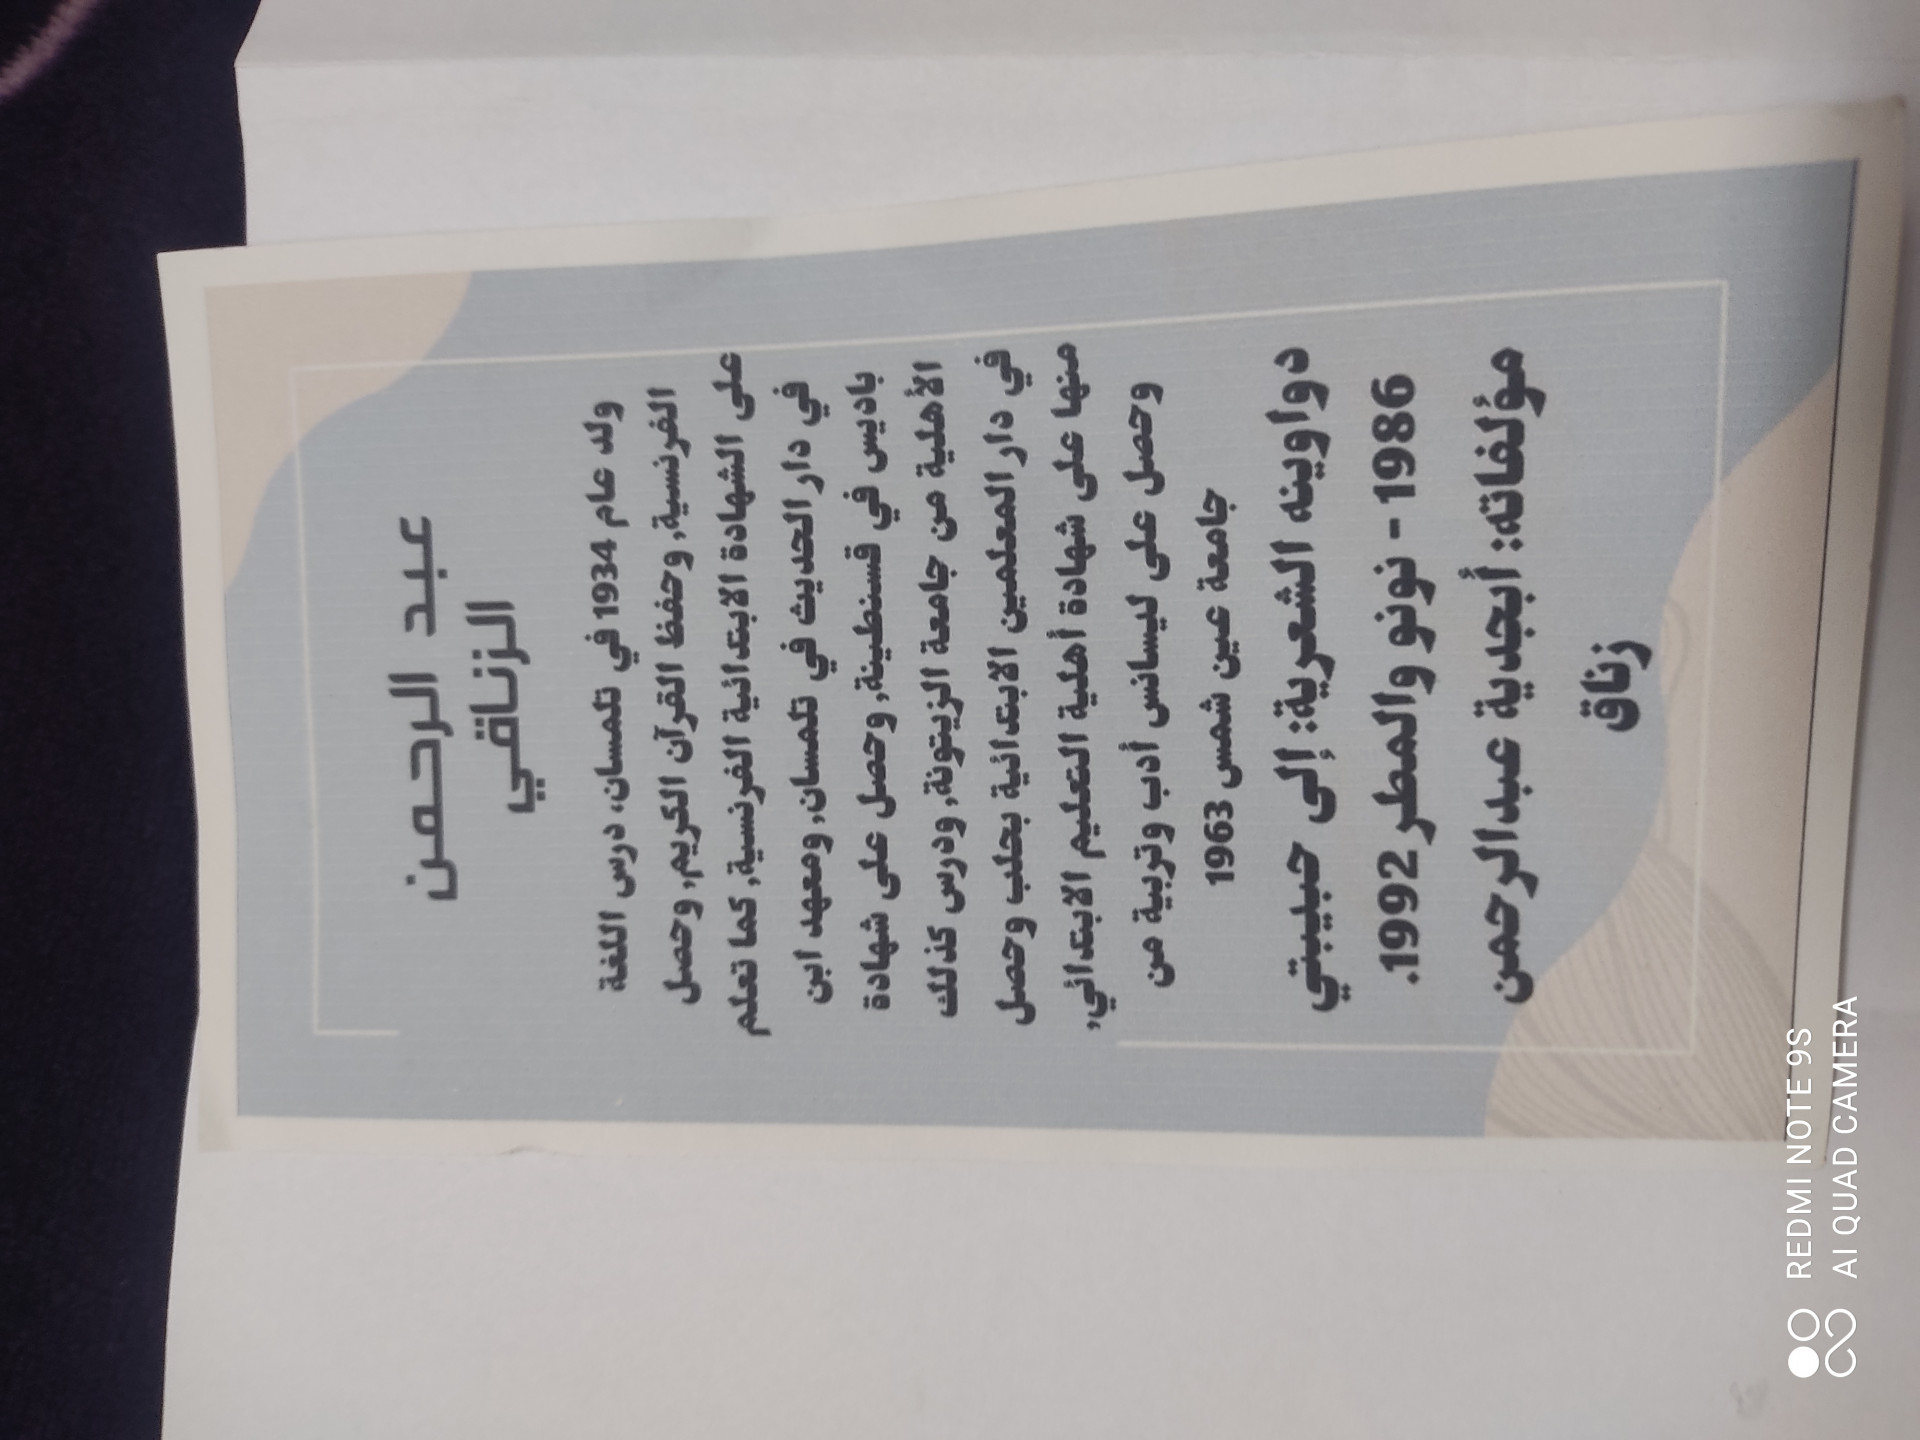 عبد الرحمن
الزناقي
ولد عام 1934 في تلمسان، درس اللغة
الفرنسية, وحفظ القرآن الكريم, وحصل
على الشهادة الابتدائية الفرنسية, كما تعلم
في دار الحديث في تلمسان, ومعهد ابن
باديس في قسنطينة, وحصل على شهادة
الأهلية من جامعة الزيتونة, ودرس كذلك
في دار المعلمين الابتدائية بحلب وحصل
منها على شهادة أهلية التعليم الابتدائي,
وحصل على ليسانس أدب وتربية من
جامعة عين شمس 1963
دواوينه الشعرية: إلى حبيبتي
1986 - نونو والمطر 1992.
مؤلفاته: أبجدية عبدالرحمن
زناق
REDMI NOTE 9S
AI QUAD CAMERA